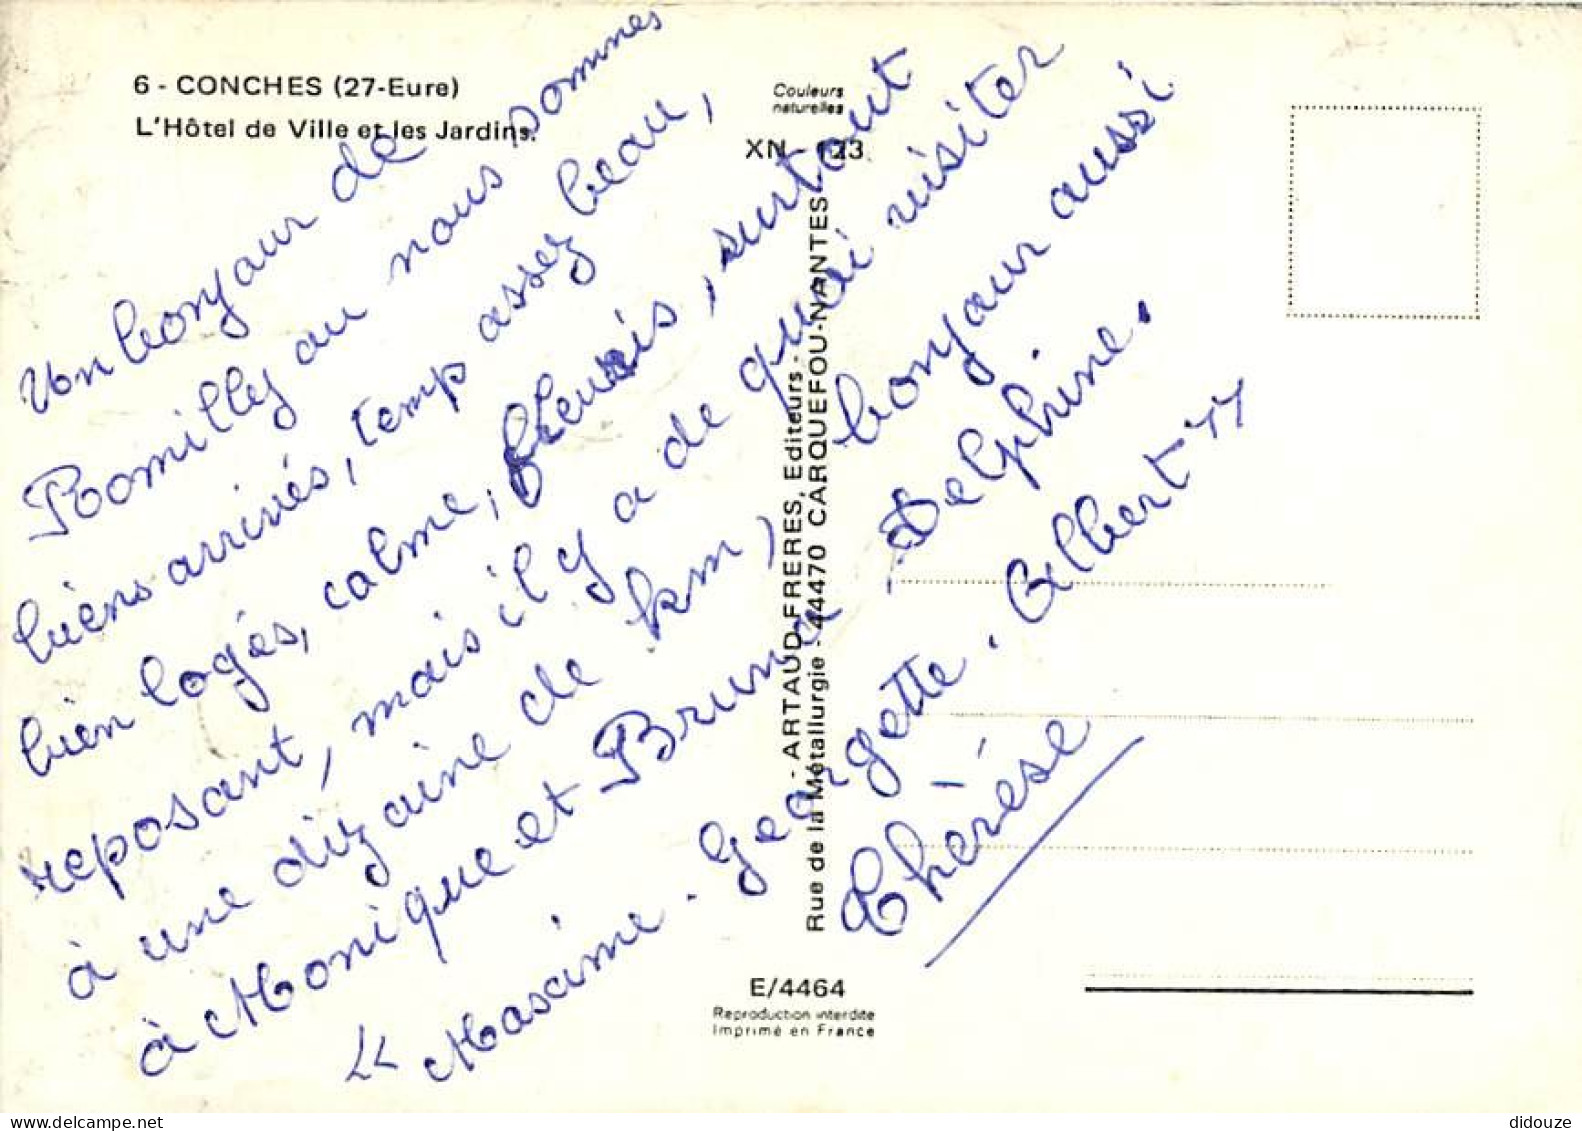 6 - CONCHES (27-Eure)
L'Hôtel de Ville et les Jardins.
Couleurs
naturelles
XN - 123
Un bonjour de
Romilly ou nous sommes
biens arrivés, temp assez beau,
bien logés, calme, fleuris, surtout
reposant, mais il y a de quoi visiter
à une dizaine de km) bonjour aussi
à Monique et Bruno Delphine.
" Maxime. Georgette. Albert "
Thérèse
- ARTAUD FRERES, Editeurs -
Rue de la Métallurgie - 44470 CARQUEFOU-NANTES
E/4464
Reproduction interdite
Imprimé en France
didouze